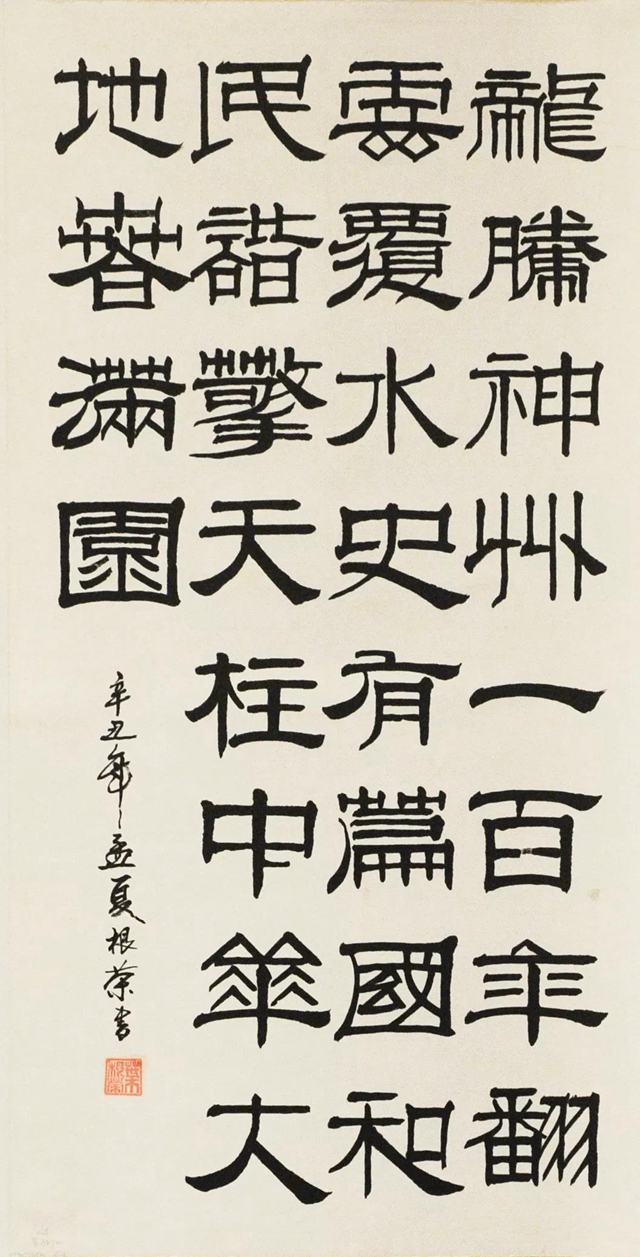 龍騰神州一百年翻
雲覆水史有篇國和
民諧擎天柱中華大
地春滿園
辛丑年孟夏根荣書